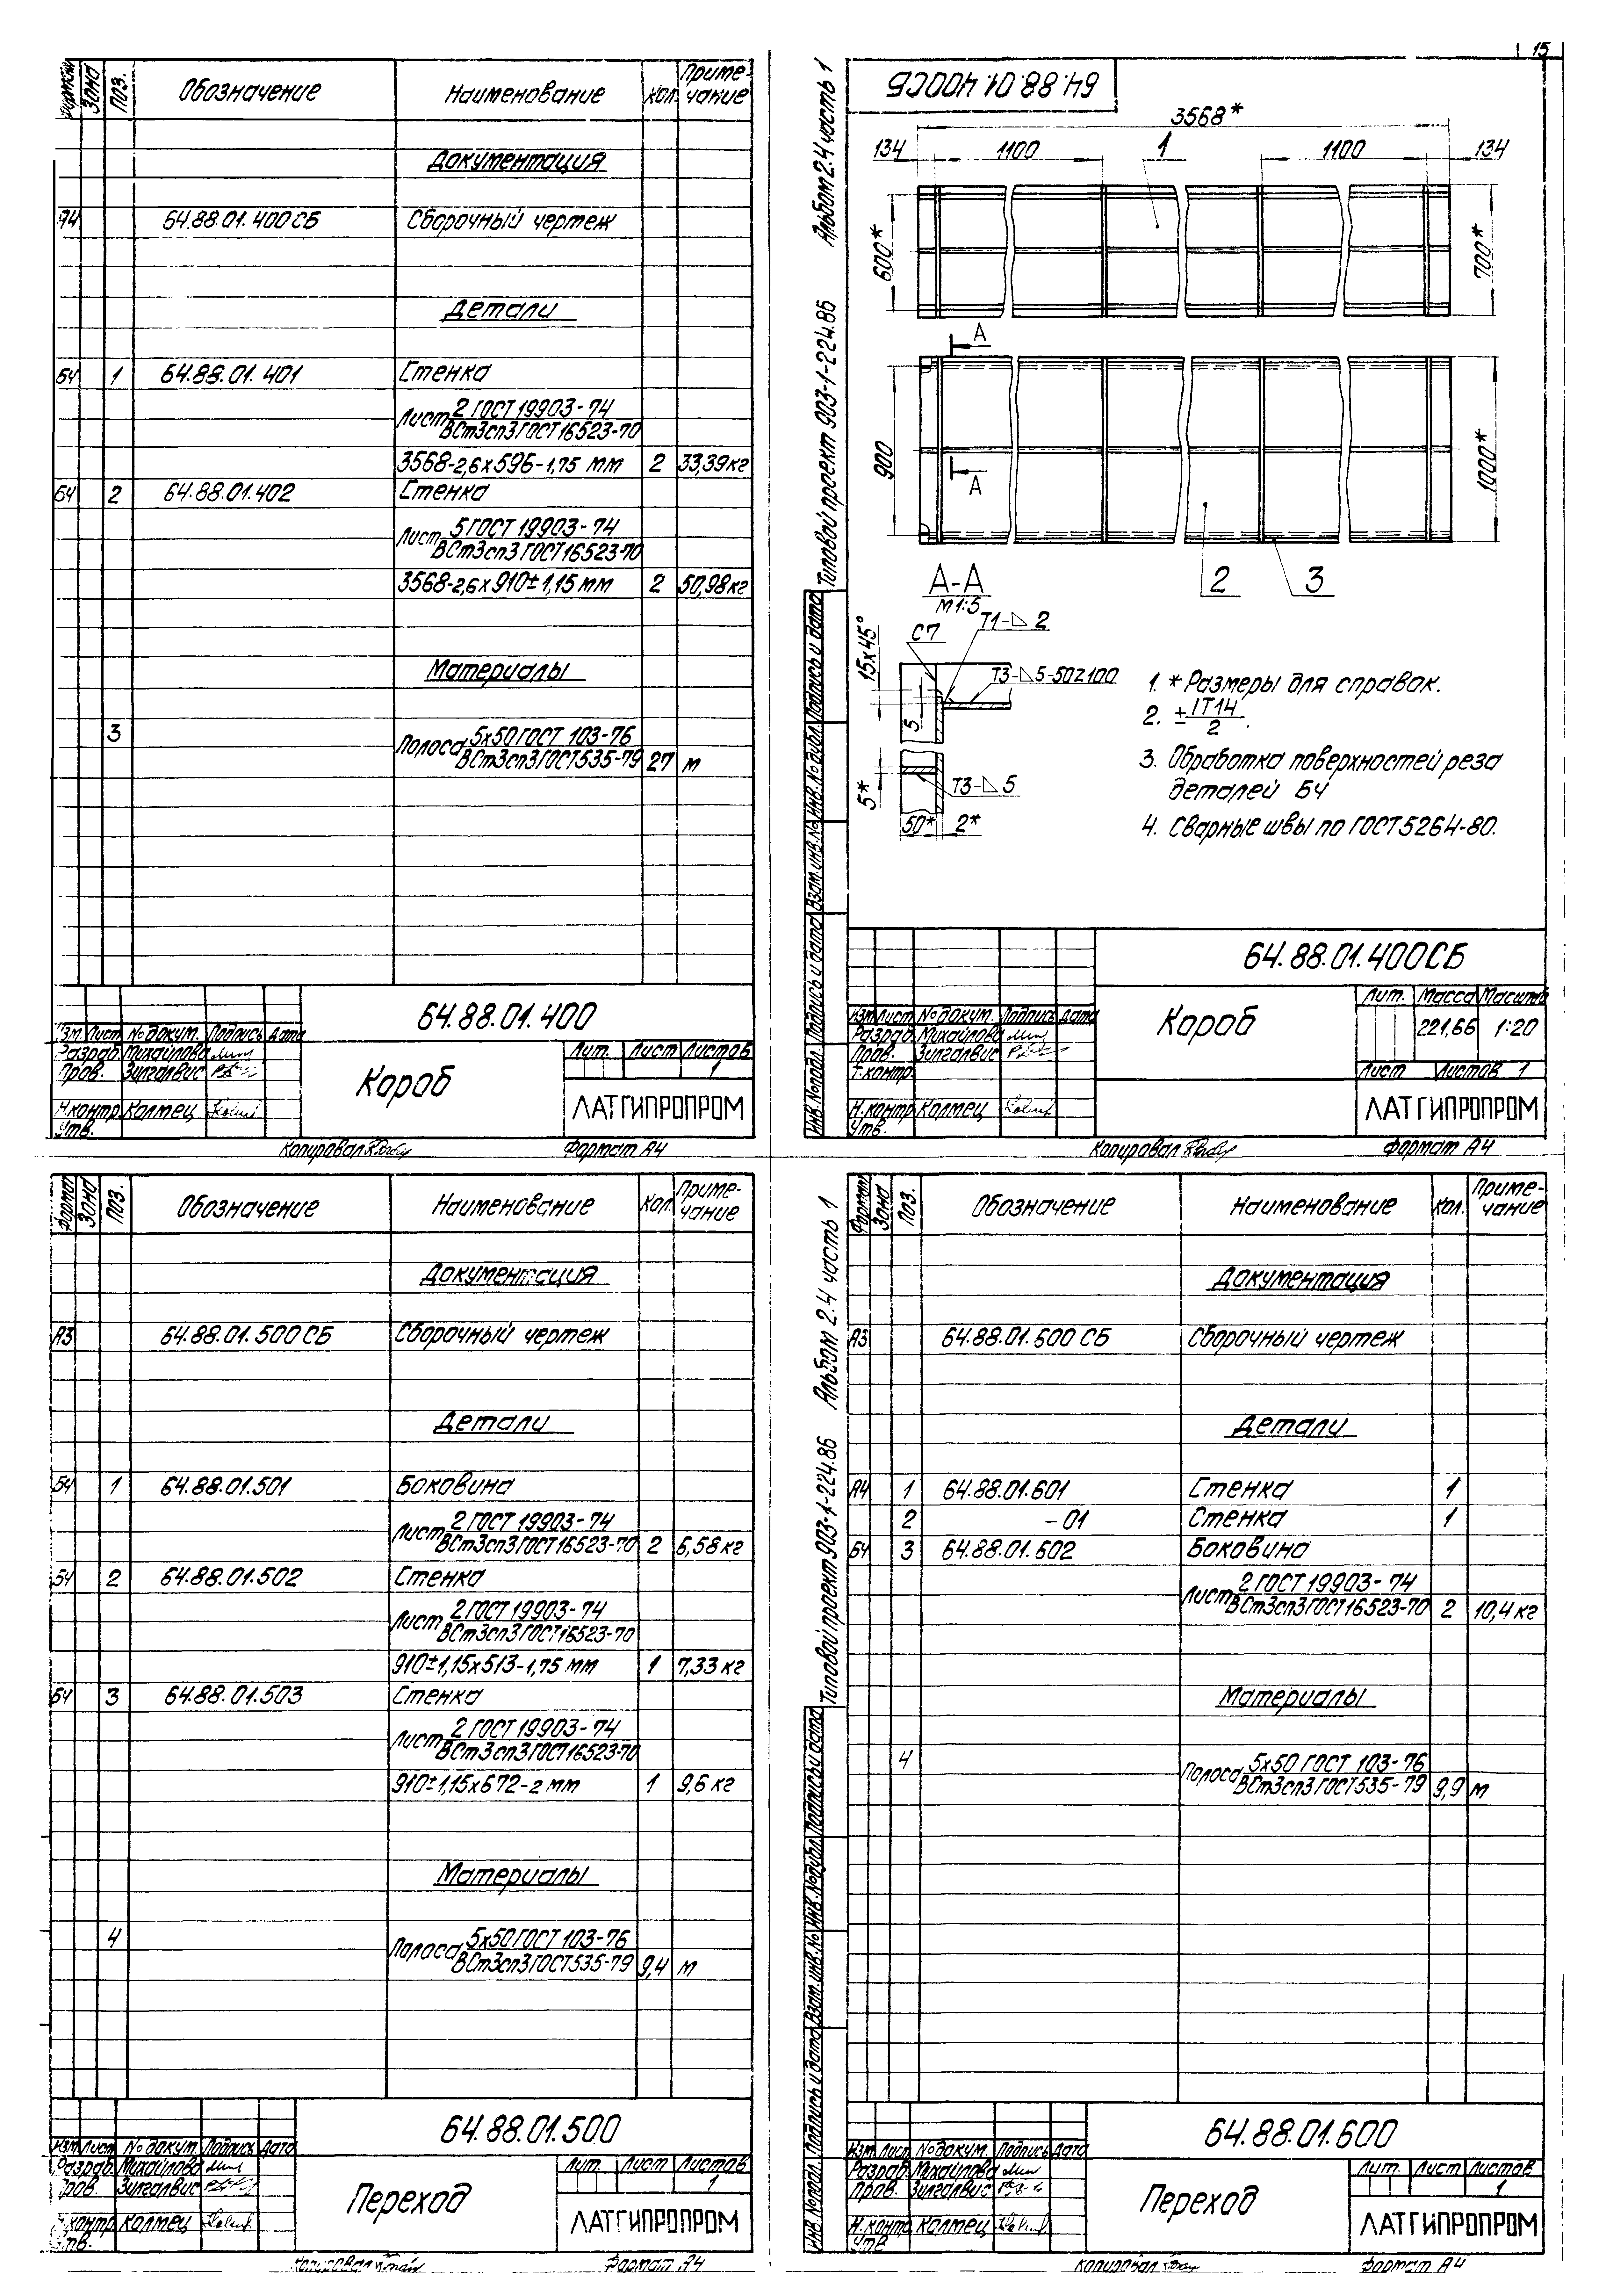 15
Формат Зона Поз. Обозначение Наименование Кол. Приме-
чание
Документация
А4 64.88.01.400СБ Сборочный чертеж
Детали
БЧ 1 64.88.01.401 Стенка
Лист 2 ГОСТ 19903-74
ВСт3сп3 ГОСТ 16523-70
3568-2,6х596-1,75 мм 2 33,39кг
БЧ 2 64.88.01.402 Стенка
Лист 5 ГОСТ 19903-74
ВСт3сп3 ГОСТ 16523-70
3568-2,6х910±1,15 мм 2 50,98кг
Материалы
3 Полоса 5х50 ГОСТ 103-76
ВСт3сп3 ГОСТ 535-79 27 м
64.88.01.400
Изм. Лист № докум. Подпись Дата
Разраб. Михайлова
Пров. Зилгалвис
Н.контр. Калмец
Утв.
Короб
Лит. Лист Листов
1
ЛАТГИПРОПРОМ
Копировал Формат А4
Типовой проект 903-1-224.86 Альбом 2.4 часть 1
64.88.01.400СБ
3568*
134 1100 1 1100 134
600* 700*
А
900 1000*
А
2 3
А-А
М1:5
С7 Т1-⊿ 2
15х45°
Т3-⊿5-50Z100
5
Т3-⊿ 5
5*
50* 2*
1. * Размеры для справок.
2. ± IT14
2 .
3. Обработка поверхностей реза
деталей БЧ
4. Сварные швы по ГОСТ 5264-80.
Инв.№ подл. Подпись и дата Взам.инв.№ Инв.№ дубл. Подпись и дата
64.88.01.400СБ
Изм. Лист № докум. Подпись Дата
Разраб. Михайлова
Пров. Зилгалвис
Т.контр.
Н.контр. Калмец
Утв.
Короб
Лит. Масса Масштаб
221,66 1:20
Лист Листов 1
ЛАТГИПРОПРОМ
Копировал Формат А4
Формат Зона Поз. Обозначение Наименование Кол. Приме-
чание
Документация
А3 64.88.01.500СБ Сборочный чертеж
Детали
БЧ 1 64.88.01.501 Боковина
Лист 2 ГОСТ 19903-74
ВСт3сп3 ГОСТ 16523-70 2 6,58 кг
БЧ 2 64.88.01.502 Стенка
Лист 2 ГОСТ 19903-74
ВСт3сп3 ГОСТ 16523-70
910±1,15х513-1,75 мм 1 7,33 кг
БЧ 3 64.88.01.503 Стенка
Лист 2 ГОСТ 19903-74
ВСт3сп3 ГОСТ 16523-70
910±1,15х672-2 мм 1 9,6 кг
Материалы
4 Полоса 5х50 ГОСТ 103-76
ВСт3сп3 ГОСТ 535-79 9,4 м
64.88.01.500
Изм. Лист № докум. Подпись Дата
Разраб. Михайлова
Пров. Зилгалвис
Н.контр. Калмец
Утв.
Переход
Лит. Лист Листов
1
ЛАТГИПРОПРОМ
Копировал Формат А4
Типовой проект 903-1-224.86 Альбом 2.4 часть 1
Формат Зона Поз. Обозначение Наименование Кол. Приме-
чание
Документация
А3 64.88.01.600 СБ Сборочный чертеж
Детали
А4 1 64.88.01.601 Стенка 1
2 -01 Стенка 1
БЧ 3 64.88.01.602 Боковина
Лист 2 ГОСТ 19903-74
ВСт3сп3 ГОСТ 16523-70 2 10,4 кг
Материалы
4 Полоса 5х50 ГОСТ 103-76
ВСт3сп3 ГОСТ 535-79 9,9 м
Инв.№ подл. Подпись и дата Взам.инв.№ Инв.№ дубл. Подпись и дата
64.88.01.600
Изм. Лист № докум. Подпись Дата
Разраб. Михайлова
Пров. Зилгалвис
Н.контр. Калмец
Утв.
Переход
Лит. Лист Листов
1
ЛАТГИПРОПРОМ
Копировал Формат А4